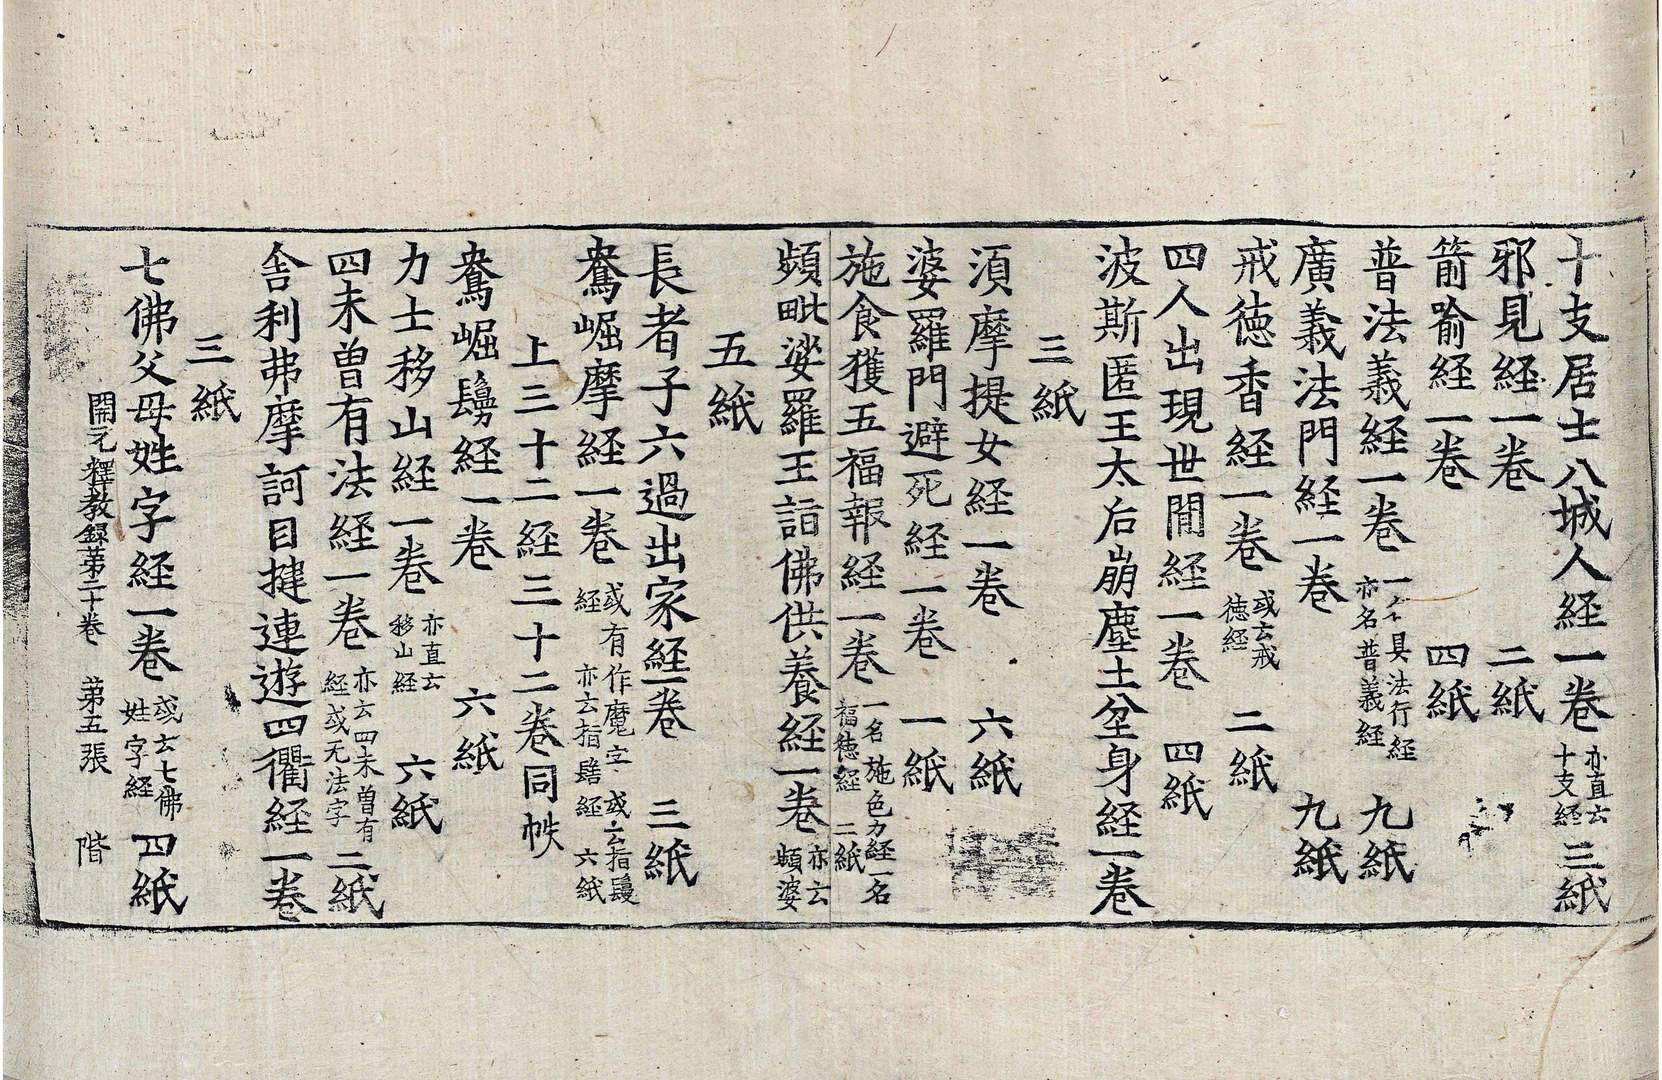 十支居士八城人経一卷 亦直云十支経 三紙
邪見経一卷 二紙
箭喻経一卷 四紙
普法義経一卷 一名具法行経亦名普義経 九紙
廣義法門経一卷 九紙
戒徳香経一卷 或云戒徳経 二紙
四人出現世閒経一卷 四紙
波斯匿王太后崩塵土坌身経一卷
三紙
湏摩提女経一卷 六紙
婆羅門避死経一卷 一紙
施食獲五福報経一卷 一名施色力経一名福徳経 二紙
頻毗娑羅王詣佛供養経一卷 亦云頻婆
五紙
長者子六過出家経一卷 三紙
鴦崛摩経一卷 或有作魔字或云指鬘経亦云指髻経 六紙
上三十二経三十二卷同帙
鴦崛髻経一卷 六紙
力士移山経一卷 亦直云移山経 六紙
四未曽有法経一卷 亦云四未曽有経或无法字 二紙
舎利弗摩訶目揵連遊四衢経一卷
三紙
七佛父母姓字経一卷 或云七佛姓字経 四紙
開元釋教録苐二十卷 苐五張 階